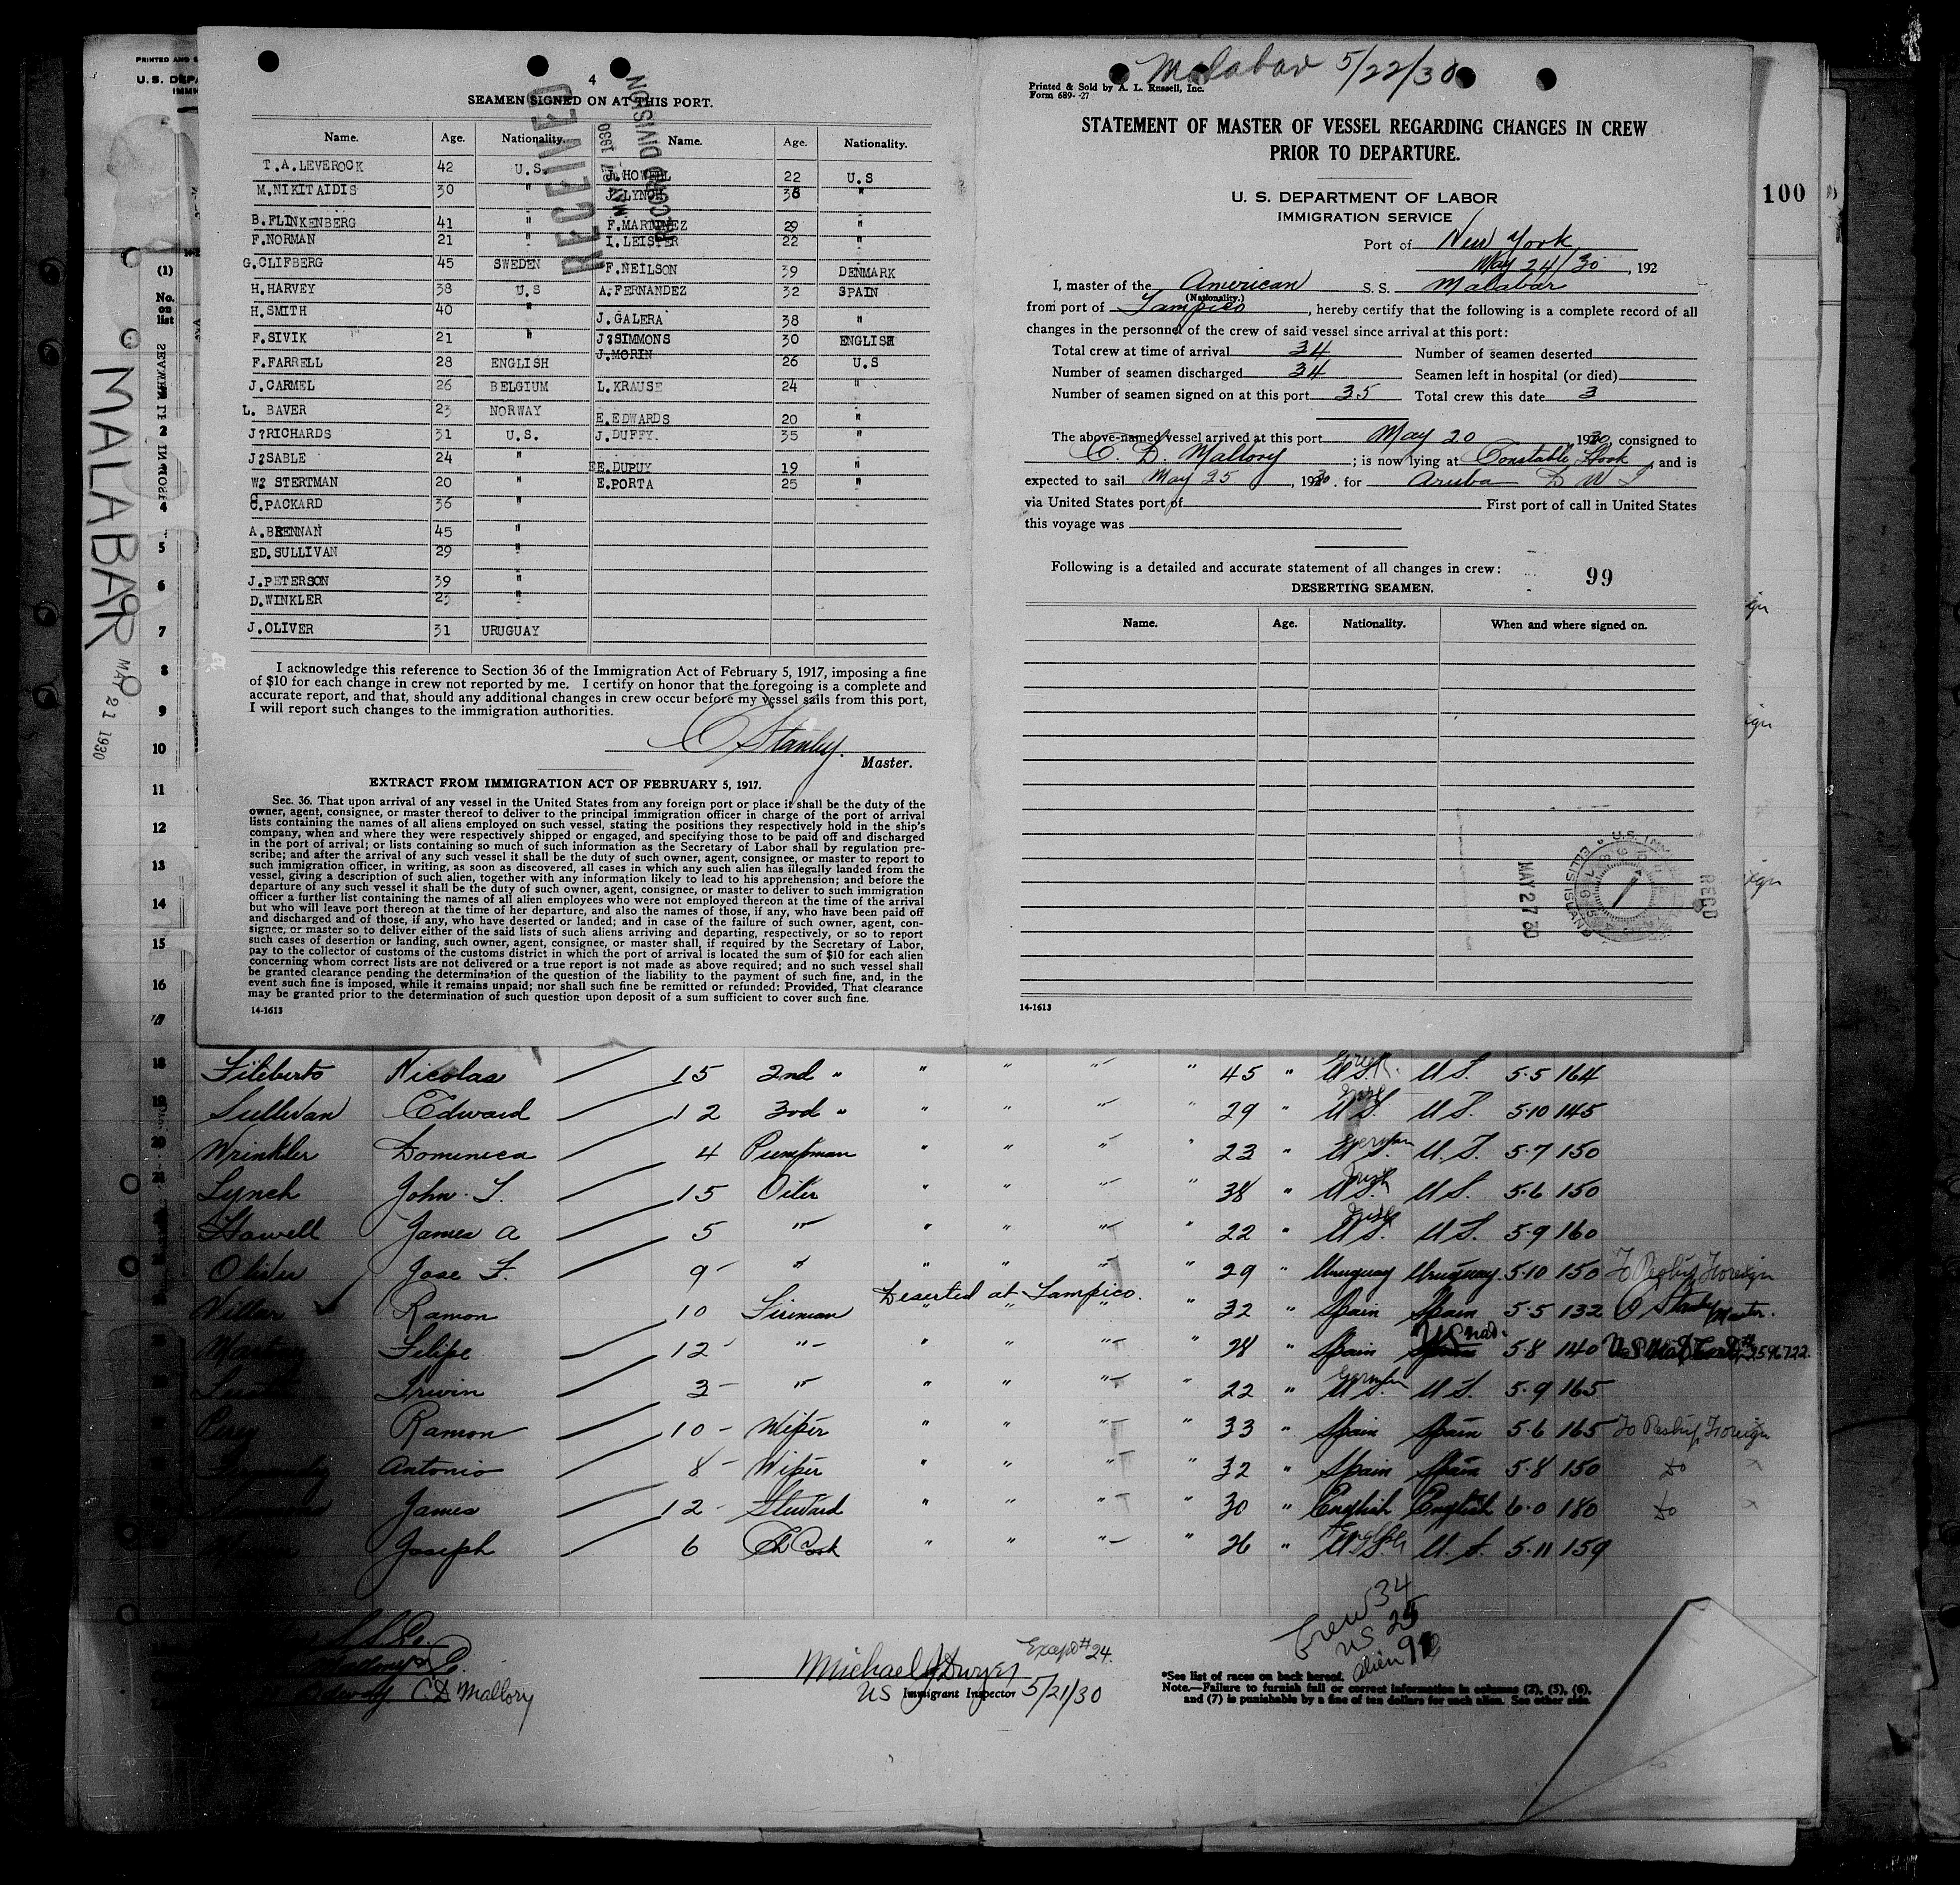 PRINTED AND S
U. S. DEPA
IMMI
(1)
No.
on
list
MALABAR
MAY 21 1930
2
4
5
6
7
8
9
10
11
12
13
14
15
16
17
4
SEAMEN SIGNED ON AT THIS PORT.
RECEIVED
RECORD DIVISION
Name. Age. Nationality. Name. Age. Nationality.
T.A.LEVEROCK 42 U.S. J.HOWELL 22 U.S
M.NIKITAIDIS 30 " J.LYNCH 38 "
B.FLINKENBERG 41 " F.MARTINEZ 29 "
F.NORMAN 21 " I.LEISTER 22 "
G.CLIFBERG 45 SWEDEN F.NEILSON 39 DENMARK
H.HARVEY 38 U.S A.FERNANDEZ 32 SPAIN
H.SMITH 40 " J.GALERA 38 "
F.SIVIK 21 " J?SIMMONS 30 ENGLISH
F.FARRELL 28 ENGLISH J.MORIN 26 U.S
J.CARMEL 26 BELGIUM L.KRAUSE 24 "
L. BAVER 23 NORWAY E.EDWARDS 20 "
J?RICHARDS 31 U.S. J.DUFFY. 35 "
J?SABLE 24 " E.DUPUY 19 "
W? STERTMAN 20 " E.PORTA 25 "
C.PACKARD 36 "
A.BRENNAN 45 "
ED.SULLIVAN 29 "
J.PETERSON 39 "
D.WINKLER 23 "
J.OLIVER 31 URUGUAY
I acknowledge this reference to Section 36 of the Immigration Act of February 5, 1917, imposing a fine
of $10 for each change in crew not reported by me. I certify on honor that the foregoing is a complete and
accurate report, and that, should any additional changes in crew occur before my vessel sails from this port,
I will report such changes to the immigration authorities.
C Stanley.
Master.
EXTRACT FROM IMMIGRATION ACT OF FEBRUARY 5, 1917.
Sec. 36. That upon arrival of any vessel in the United States from any foreign port or place it shall be the duty of the
owner, agent, consignee, or master thereof to deliver to the principal immigration officer in charge of the port of arrival
lists containing the names of all aliens employed on such vessel, stating the positions they respectively hold in the ship's
company, when and where they were respectively shipped or engaged, and specifying those to be paid off and discharged
in the port of arrival; or lists containing so much of such information as the Secretary of Labor shall by regulation pre-
scribe; and after the arrival of any such vessel it shall be the duty of such owner, agent, consignee, or master to report to
such immigration officer, in writing, as soon as discovered, all cases in which any such alien has illegally landed from the
vessel, giving a description of such alien, together with any information likely to lead to his apprehension; and before the
departure of any such vessel it shall be the duty of such owner, agent, consignee, or master to deliver to such immigration
officer a further list containing the names of all alien employees who were not employed thereon at the time of the arrival
but who will leave port thereon at the time of her departure, and also the names of those, if any, who have been paid off
and discharged and of those, if any, who have deserted or landed; and in case of the failure of such owner, agent, con-
signee, or master so to deliver either of the said lists of such aliens arriving and departing, respectively, or so to report
such cases of desertion or landing, such owner, agent, consignee, or master shall, if required by the Secretary of Labor,
pay to the collector of customs of the customs district in which the port of arrival is located the sum of $10 for each alien
concerning whom correct lists are not delivered or a true report is not made as above required; and no such vessel shall
be granted clearance pending the determination of the question of the liability to the payment of such fine, and, in the
event such fine is imposed, while it remains unpaid; nor shall such fine be remitted or refunded: Provided, That clearance
may be granted prior to the determination of such question upon deposit of a sum sufficient to cover such fine.
14-1613
Malabar 5/22/30
Printed & Sold by A. L. Russell, Inc.
Form 689- -27
STATEMENT OF MASTER OF VESSEL REGARDING CHANGES IN CREW
PRIOR TO DEPARTURE.
U. S. DEPARTMENT OF LABOR
IMMIGRATION SERVICE
Port of New York
May 24/30, 192
I, master of the American S. S. Malabar
(Nationality.)
from port of Tampico, hereby certify that the following is a complete record of all
changes in the personnel of the crew of said vessel since arrival at this port:
Total crew at time of arrival 34 Number of seamen deserted
Number of seamen discharged 34 Seamen left in hospital (or died)
Number of seamen signed on at this port 35 Total crew this date 3
The above-named vessel arrived at this port May 20 1930, consigned to
C. D. Mallory; is now lying at Constable Hook, and is
expected to sail May 25, 1930. for Aruba D W I
via United States port of First port of call in United States
this voyage was
Following is a detailed and accurate statement of all changes in crew:
99
DESERTING SEAMEN.
Name. Age. Nationality. When and where signed on.
MAY 27 30
U.S. IMM
ELLIS ISLAND
RECD
14-1613
100
18 Filiberto Nicolas 15 2nd " " " " 45 " Greek U.S. U.S. 5.5 164
19 Sullivan Edward 12 3rd " " " " 29 " Irish U.S. U.S. 5.10 145
20 Wrinkler Dominica 4 Pumpman " " " " 23 " German U.S. U.S. 5.7 150
21 Lynch John. T. 15 Oiler " " " " 38 " Irish U.S. U.S. 5.6 150
Howell James A 5 " " " " " 22 " Irish U.S. U.S. 5.9 160
Oliver Jose F. 9 " " " " " 29 " Uruguay Uruguay 5.10 150 To Reship Foreign
Villar Ramon 10 Fireman Deserted at Tampico. " 32 " Spain Spain 5.5 132 C Stanley Master.
Filipe 12 " " " " " 28 " Spain US nat. 5.8 140 2596722
Irwin 3 " " " " " 22 " German U.S. U.S. 5.9 165
Perez Ramon 10 Wiper " " " " 33 " Spain Spain 5.6 165 To Reship Foreign
Fernandez Antonio 8 Wiper " " " " 32 " Spain Spain 5.8 150 do
James 12 Steward " " " " 30 " English English 6.0 180 do
Joseph 6 Ch Cook " " " " 26 " English U.S. U.S. 5.11 159
Crew 34
US 25
Alien 9
C. D. Mallory
Michael J Dwyer Except #24.
US Immigrant Inspector 5/21/30
*See list of races on back hereof.
Note.—Failure to furnish full or correct information in columns (2), (5), (6),
and (7) is punishable by a fine of ten dollars for each alien. See other side.